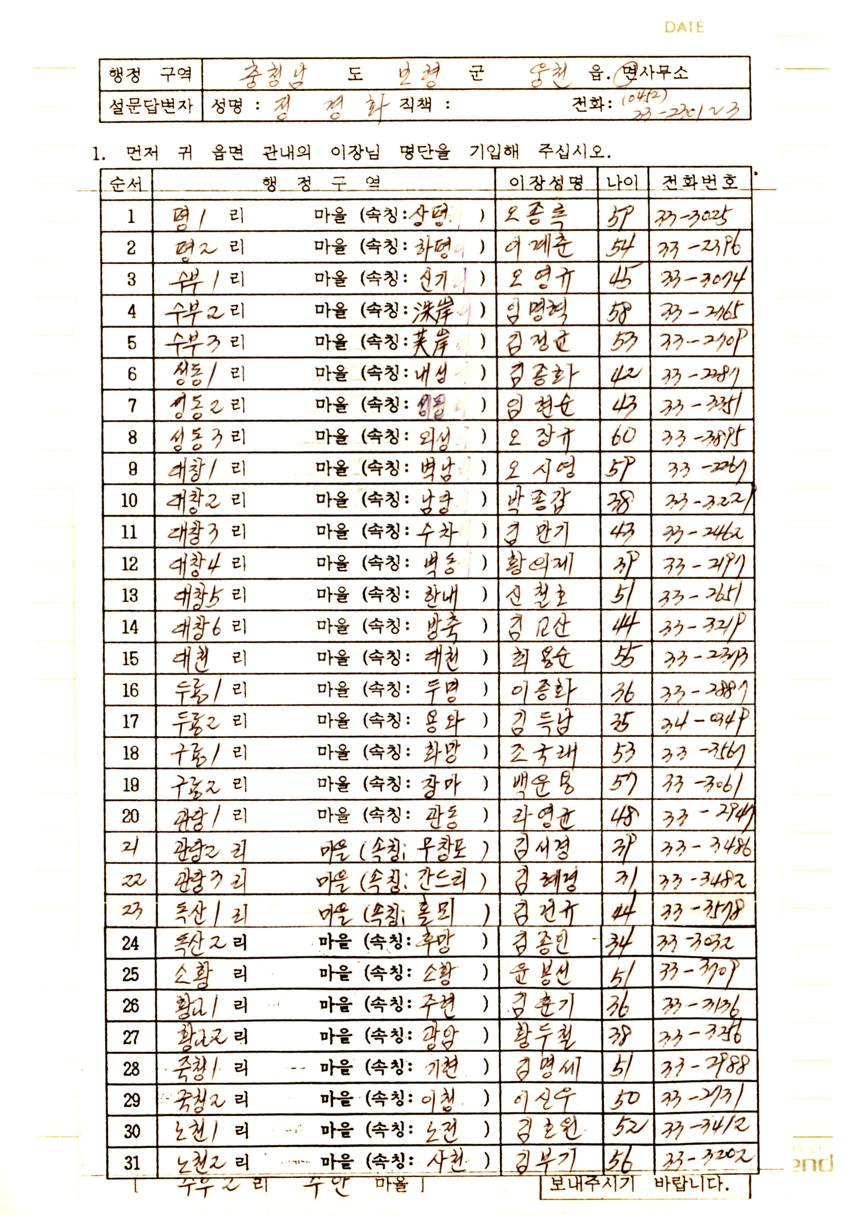 DATE
행정 구역 충청남 도 보령 군 웅천 읍.면사무소
설문답변자 성명 : 정경화 직책 : 전화: (0452) 33-2301~3
1. 먼저 귀 읍면 관내의 이장님 명단을 기입해 주십시오.
순서 행 정 구 역 이장성명 나이 전화번호
1 평1 리 마을 (속칭: 상평 ) 오종록 59 33-3025
2 평2 리 마을 (속칭: 하평 ) 이계춘 54 33-2396
3 수부1 리 마을 (속칭: 신기 ) 오영규 45 33-3074
4 수부2 리 마을 (속칭: 洙岸 ) 임명혁 58 33-2165
5 수부3 리 마을 (속칭: 芙岸 ) 김정균 53 33-2709
6 성동1 리 마을 (속칭: 내성 ) 김종화 42 33-2287
7 성동2 리 마을 (속칭: ) 임헌순 43 33-3351
8 성동3 리 마을 (속칭: 외성 ) 오장규 60 33-3895
9 대창1 리 마을 (속칭: 벽남 ) 오시영 59 33-2267
10 대창2 리 마을 (속칭: 남당 ) 박종갑 38 33-3229
11 대창3 리 마을 (속칭: 수차 ) 김만기 43 33-2462
12 대창4 리 마을 (속칭: 벽동 ) 황의제 39 33-2197
13 대창5 리 마을 (속칭: 한내 ) 신철호 51 33-2651
14 대창6 리 마을 (속칭: 방축 ) 김고산 44 33-3219
15 대천 리 마을 (속칭: 대천 ) 최용순 55 33-2393
16 두룡1 리 마을 (속칭: 두명 ) 이종화 36 33-2887
17 두룡2 리 마을 (속칭: 용와 ) 김득남 35 34-0349
18 구룡1 리 마을 (속칭: 화망 ) 조국래 53 33-3567
19 구룡2 리 마을 (속칭: 장마 ) 백운용 57 33-3061
20 관당1 리 마을 (속칭: 관동 ) 라영균 48 33-2947
21 관당2 리 마을 (속칭: 무창포 ) 김서경 39 33-3486
22 관당3 리 마을 (속칭: 간드리 ) 김혜경 31 33-3482
23 독산1 리 마을 (속칭: 홀뫼 ) 김진규 44 33-3578
24 독산2 리 마을 (속칭: 후망 ) 김종민 34 33-3032
25 소황 리 마을 (속칭: 소황 ) 윤봉선 51 33-3709
26 황교1 리 마을 (속칭: 주현 ) 김춘기 36 33-3136
27 황교2 리 마을 (속칭: 광암 ) 황두철 38 33-3256
28 죽청1 리 마을 (속칭: 기현 ) 김명세 51 33-2988
29 죽청2 리 마을 (속칭: 이청 ) 이신우 50 33-2731
30 노천1 리 마을 (속칭: 노전 ) 김호원 52 33-3412
31 노천2 리 마을 (속칭: 사현 ) 김부기 56 33-3202
수부2 리 수안 마을 보내주시기 바랍니다.
end